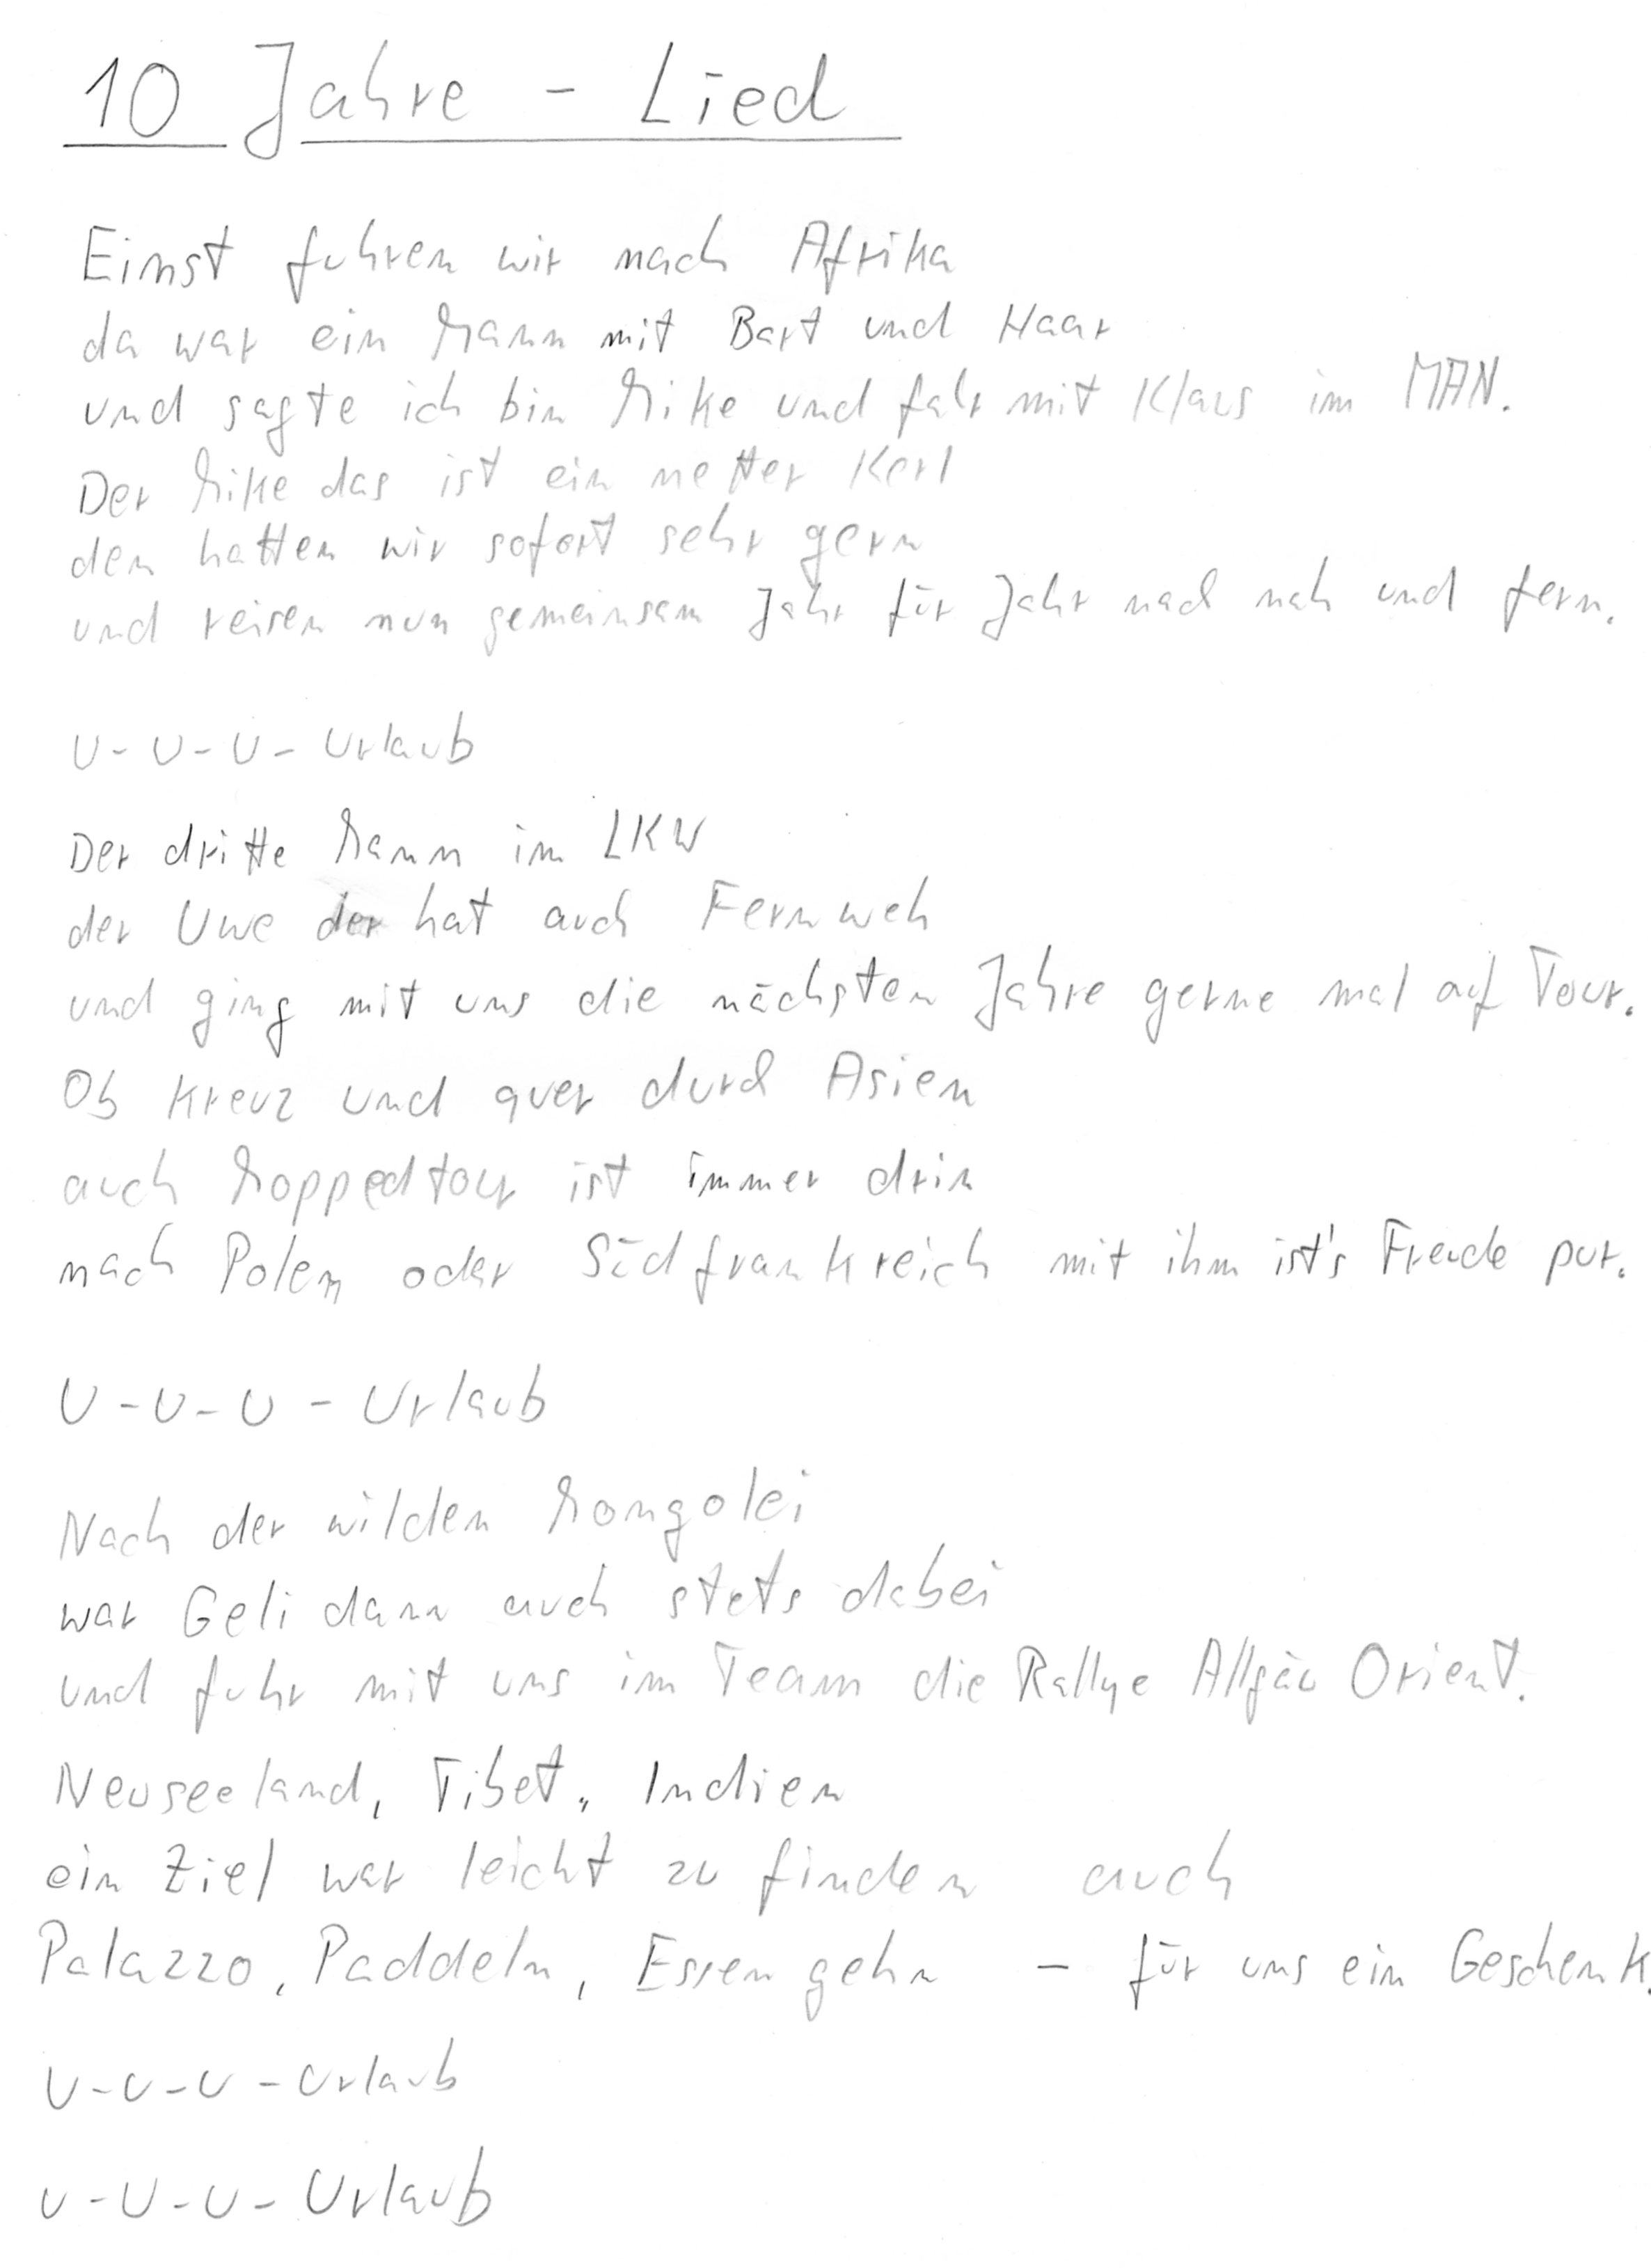 10 Jahre - Lied
Einst fuhren wir nach Afrika
da war ein Mann mit Bart und Haar
und sagte ich bin Mike und fahr mit Klaus im MAN.
Der Mike das ist ein netter Kerl
den hatten wir sofort sehr gern
und reisen nun gemeinsam Jahr für Jahr nach nah und fern.
U-U-U-Urlaub
Der dritte Mann im LKW
der Uwe der hat auch Fernweh
und ging mit uns die nächsten Jahre gerne mal auf Tour.
Ob kreuz und quer durch Asien
auch Moppedtour ist immer drin
nach Polen oder Südfrankreich mit ihm ist's Freude pur.
U-U-U-Urlaub
Nach der wilden Mongolei
war Geli dann auch stets dabei
und fuhr mit uns im Team die Rallye Allgäu Orient.
Neuseeland, Tibet, Indien
ein Ziel war leicht zu finden auch
Palazzo, Paddeln, Essen gehn - für uns ein Geschenk.
U-U-U-Urlaub
U-U-U-Urlaub